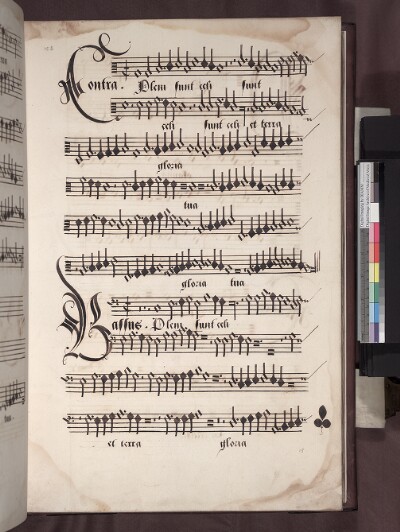 Contra. Pleni sunt celi sunt
celi sunt celi et terra
gloria
tua
gloria tua
Bassus. Pleni sunt celi
et terra gloria